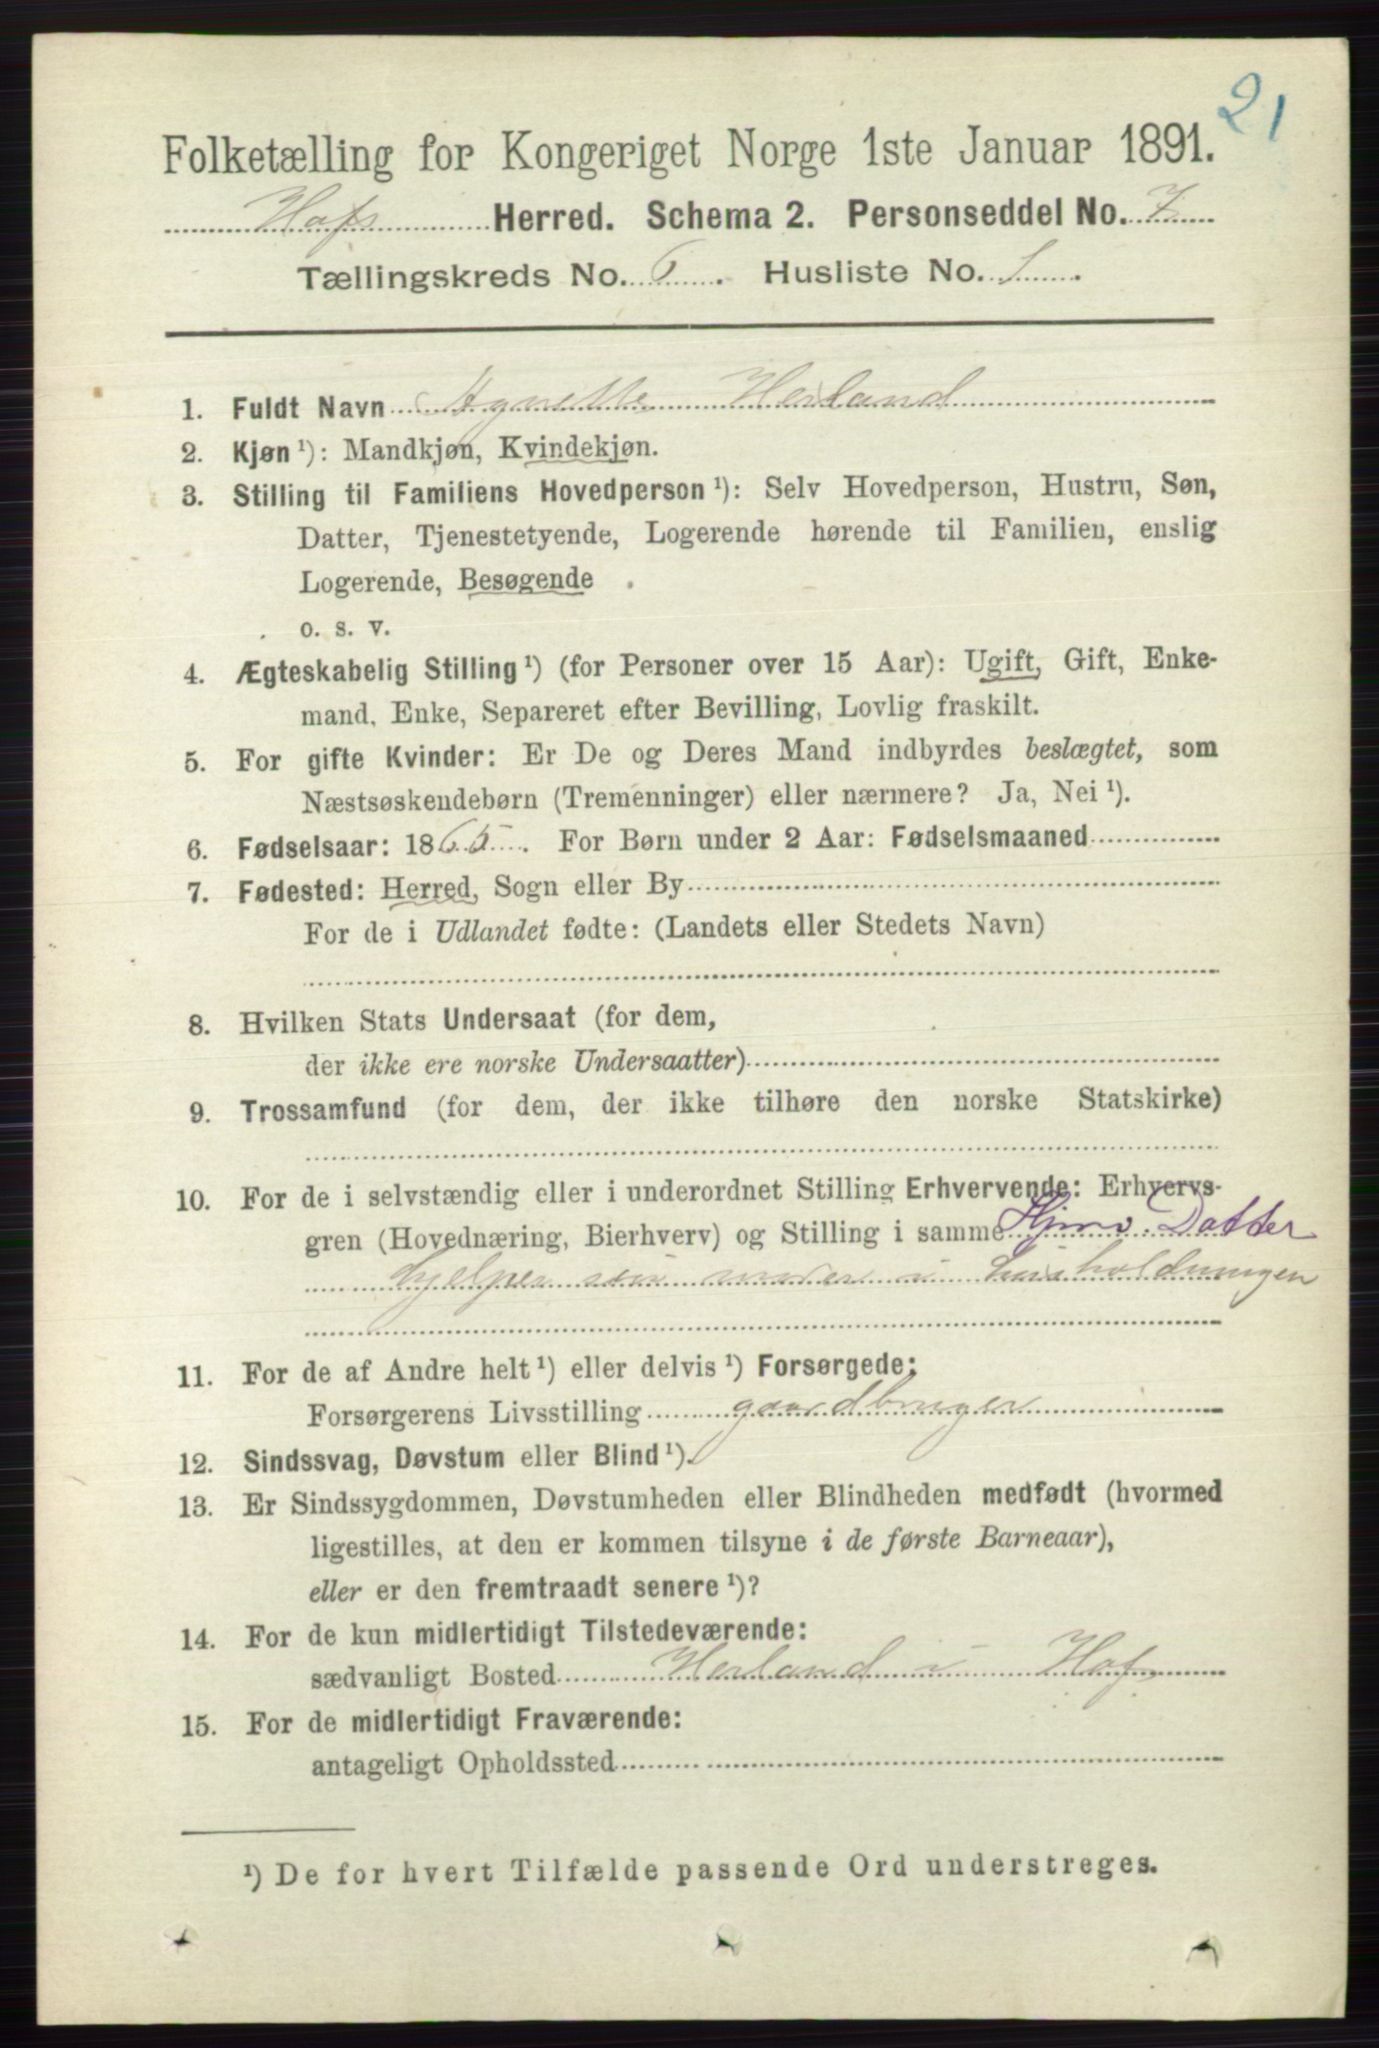 21
Folketælling for Kongeriget Norge 1ste Januar 1891.
Hofs Herred. Schema 2. Personseddel No. 7
Tællingskreds No. 6. Husliste No. 1.
1. Fuldt Navn Agnette Herland
2. Kjøn ¹): Mandkjøn, Kvindekjøn.
3. Stilling til Familiens Hovedperson ¹): Selv Hovedperson, Hustru, Søn,
Datter, Tjenestetyende, Logerende hørende til Familien, enslig
Logerende, Besøgende .
o. s. v.
4. Ægteskabelig Stilling ¹) (for Personer over 15 Aar): Ugift, Gift, Enke-
mand, Enke, Separeret efter Bevilling, Lovlig fraskilt.
5. For gifte Kvinder: Er De og Deres Mand indbyrdes beslægtet, som
Næstsøskendebørn (Tremenninger) eller nærmere? Ja, Nei ¹).
6. Fødselsaar: 1865. For Børn under 2 Aar: Fødselsmaaned
7. Fødested: Herred, Sogn eller By
For de i Udlandet fødte: (Landets eller Stedets Navn)
8. Hvilken Stats Undersaat (for dem,
der ikke ere norske Undersaatter)
9. Trossamfund (for dem, der ikke tilhøre den norske Statskirke)
10. For de i selvstændig eller i underordnet Stilling Erhvervende: Erhvervs-
gren (Hovednæring, Bierhverv) og Stilling i samme Hjmv. Datter
hjelper sin moder i huisholdningen
11. For de af Andre helt ¹) eller delvis ¹) Forsørgede:
Forsørgerens Livsstilling gaardbruger
12. Sindssvag, Døvstum eller Blind ¹).
13. Er Sindssygdommen, Døvstumheden eller Blindheden medfødt (hvormed
ligestilles, at den er kommen tilsyne i de første Barneaar),
eller er den fremtraadt senere ¹)?
14. For de kun midlertidigt Tilstedeværende:
sædvanligt Bosted Herland i Hofs
15. For de midlertidigt Fraværende:
antageligt Opholdssted
¹) De for hvert Tilfælde passende Ord understreges.